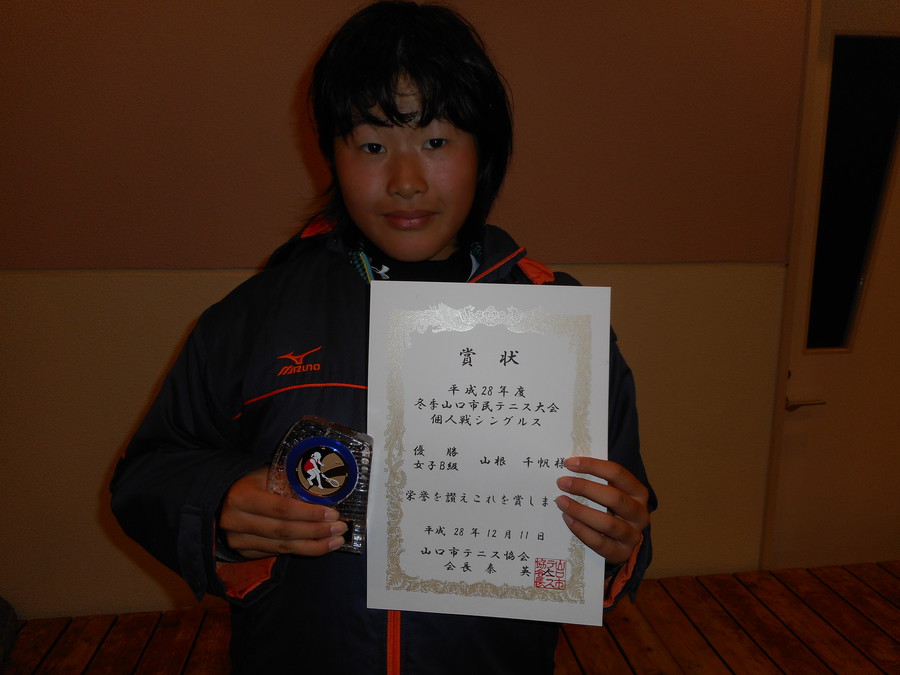 MIZUNO
賞状
平成28年度
冬季山口市民テニス大会
個人戦シングルス
優勝
女子B級 山根 千帆様
栄誉を讃えこれを賞しま
平成 28 年 12 月 11 日
山口市テニス協会
会長 秦 英
山口市
テニス
協会長